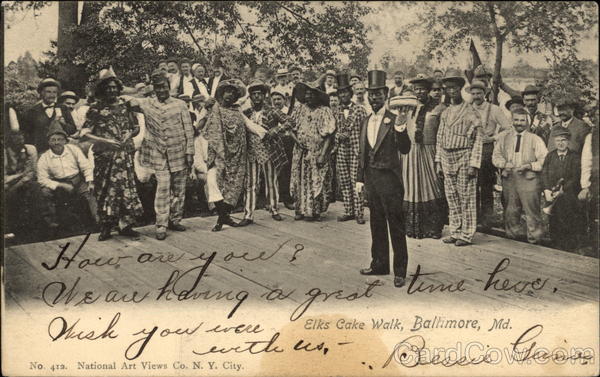 How are you?
We are having a great time here.
Elks Cake Walk, Baltimore, Md.
Wish you were
with us,
Bessie
No. 412. National Art Views Co. N. Y. City.
CardCow.com